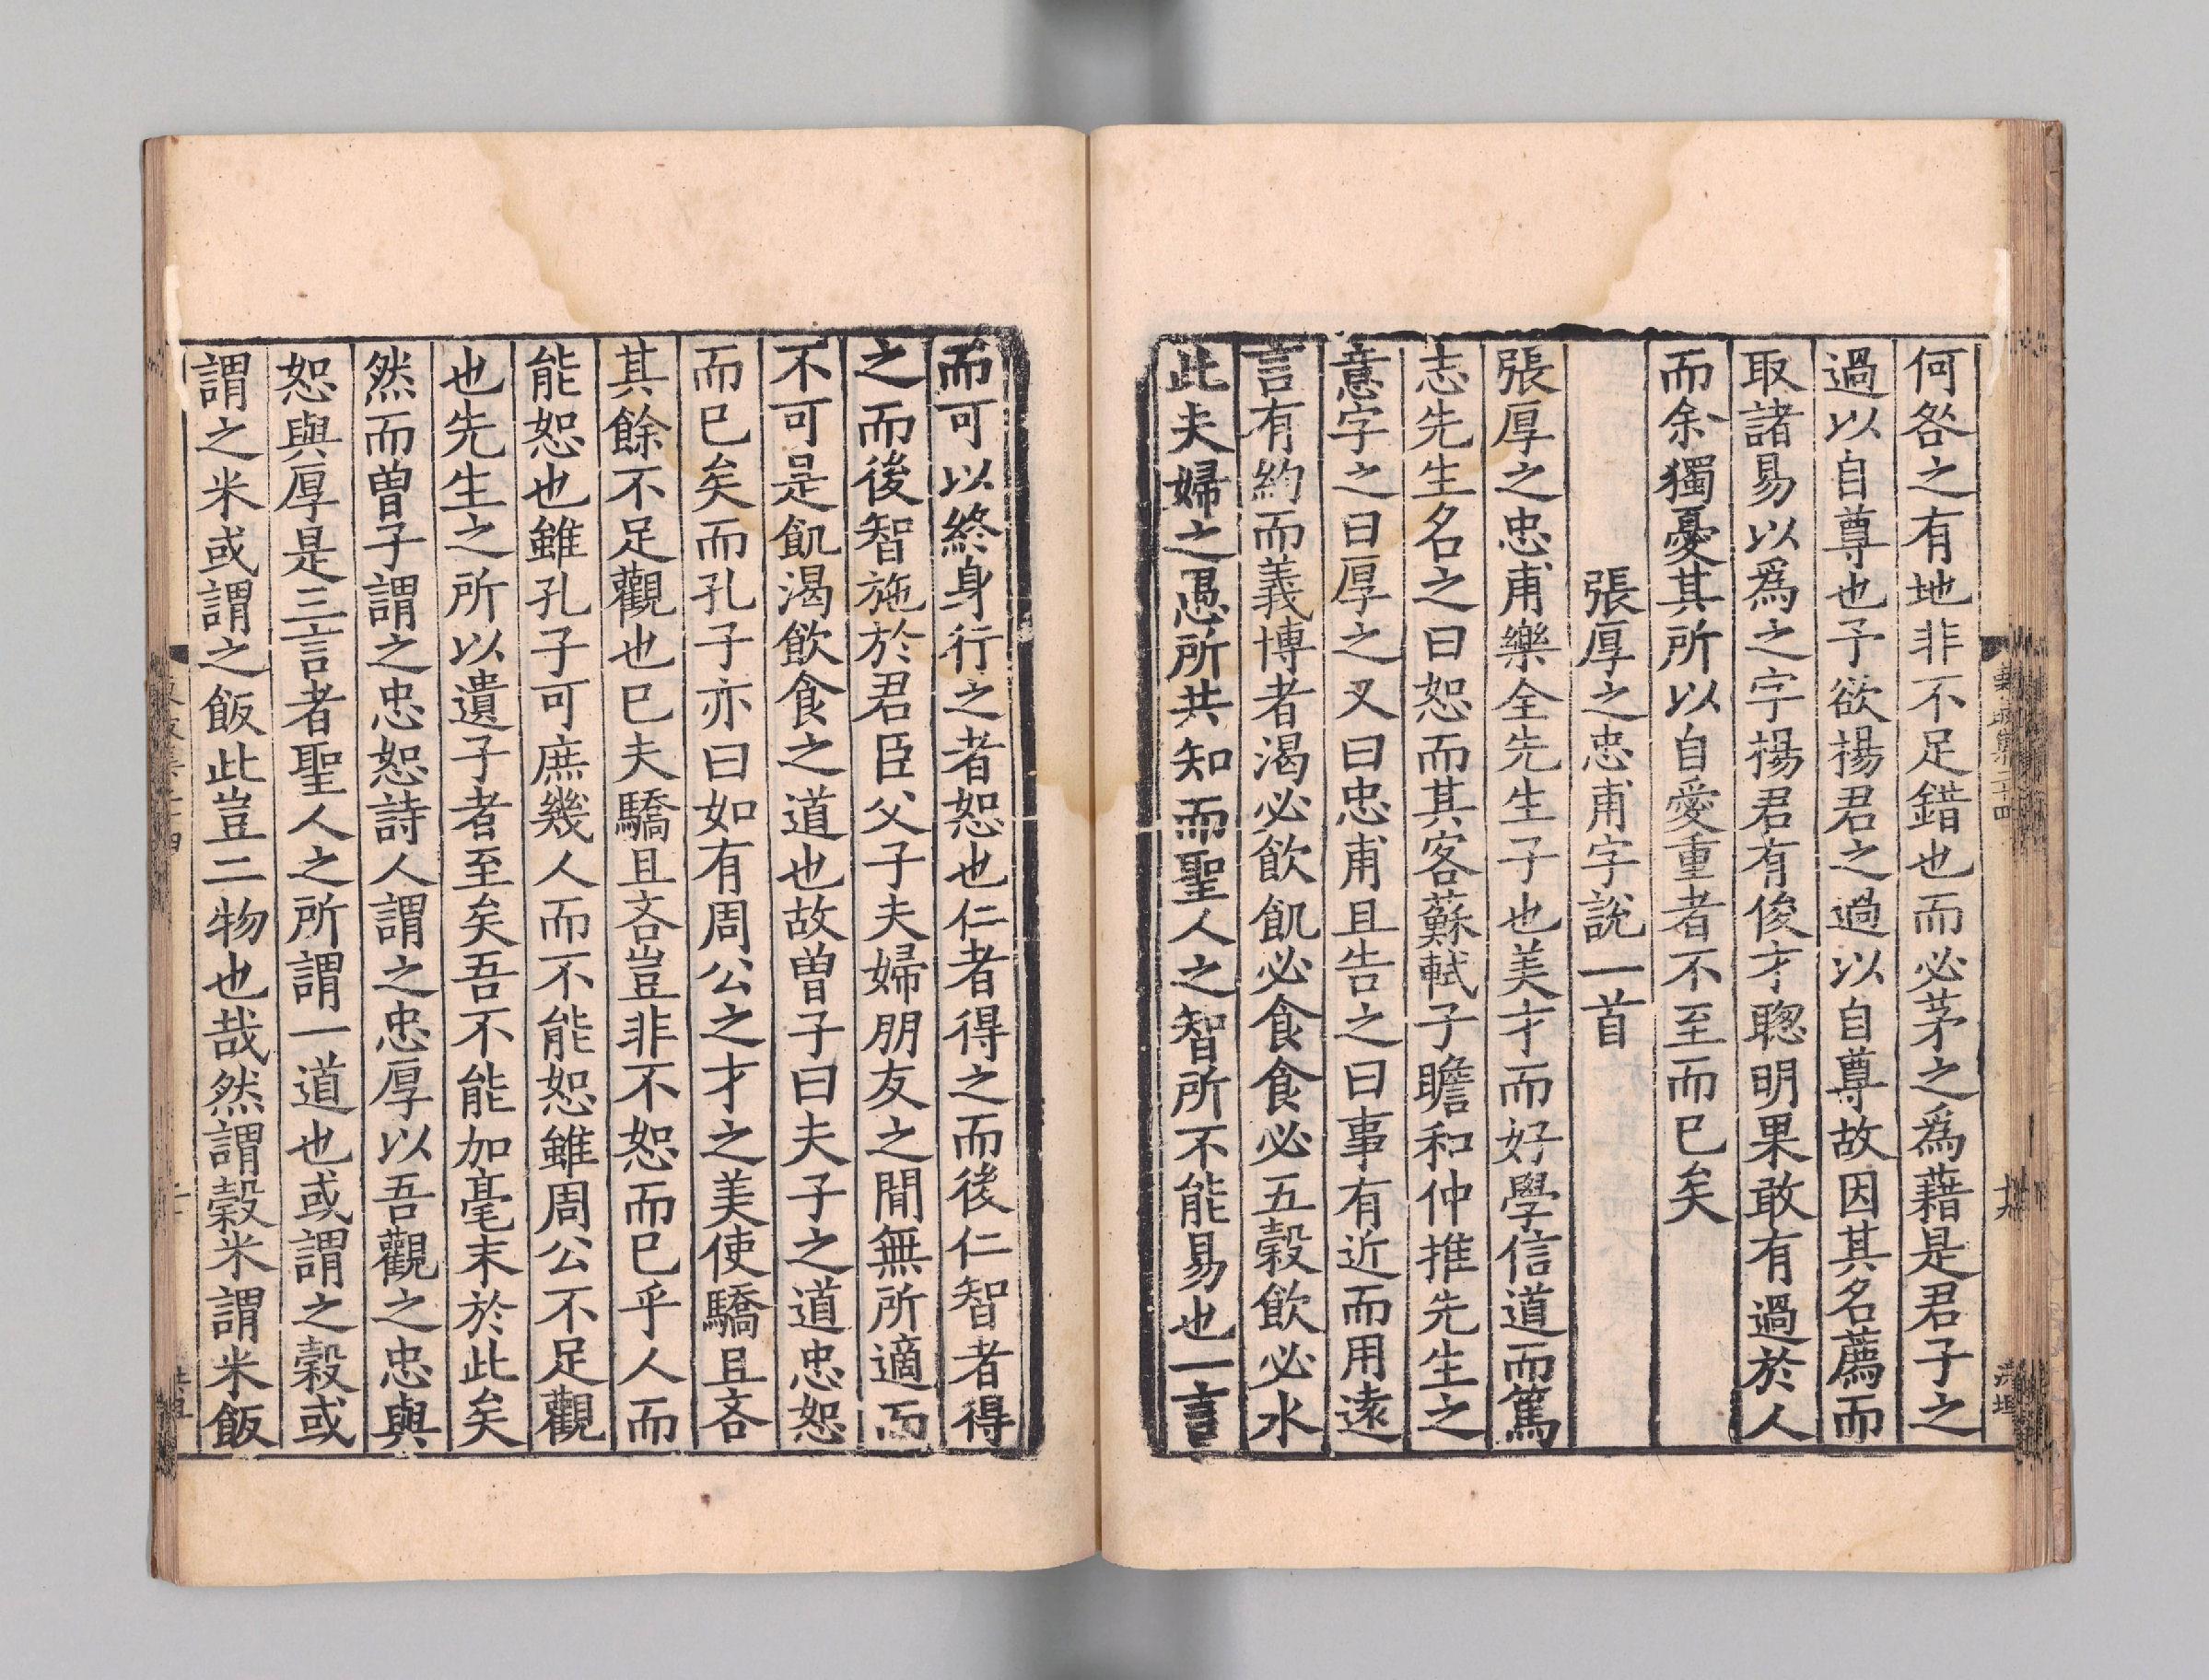 何咎之有地非不足錯也而必茅之爲藉是君子之
過以自尊也予欲楊君之過以自尊故因其名薦而
取諸易以爲之字楊君有俊才聦明果敢有過於人
而余獨憂其所以自愛重者不至而已矣
張厚之忠甫字說一首
張厚之忠甫樂全先生子也美才而好學信道而篤
志先生名之曰恕而其客蘇軾子瞻和仲推先生之
意字之曰厚之又曰忠甫且告之曰事有近而用遠
言有約而義博者渴必飲飢必食食必五穀飲必水
此夫婦之愚所共知而聖人之智所不能易也一言
而可以終身行之者恕也仁者得之而後仁智者得
之而後智施於君臣父子夫婦朋友之閒無所適而
不可是飢渴飲食之道也故曾子曰夫子之道忠恕
而已矣而孔子亦曰如有周公之才之美使驕且吝
其餘不足觀也已夫驕且吝豈非不恕而已乎人而
能恕也雖孔子可庶幾人而不能恕雖周公不足觀
也先生之所以遺子者至矣吾不能加毫末於此矣
然而曾子謂之忠恕詩人謂之忠厚以吾觀之忠與
恕與厚是三言者聖人之所謂一道也或謂之穀或
謂之米或謂之飯此豈二物也哉然謂穀米謂米飯